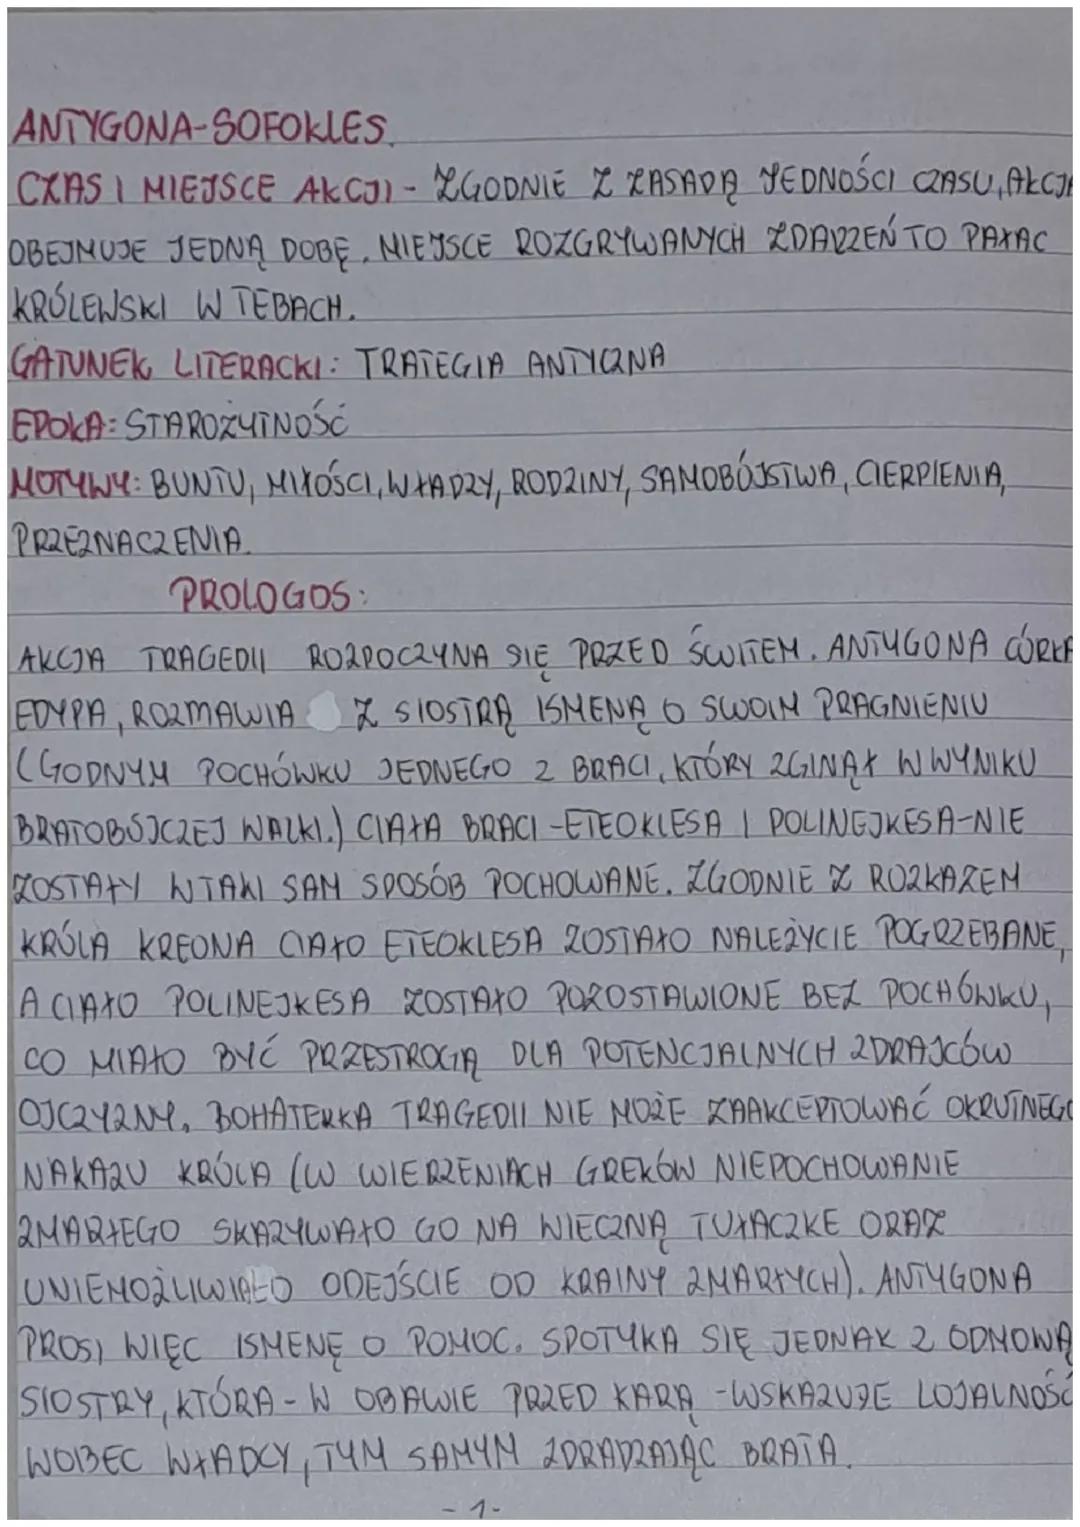 ANTYGONA-SOFOKLES.
CZAS I MIEJSCE AKCJI - ZGODNIE Z ZASADĄ JEDNOŚCI CZASU, AKCJA
OBEJMUJE JEDNĄ DOBĘ. MIEJSCE ROZGRYWANYCH ZDARZEŃ TO PAŁAC
KRÓLEWSKI W TEBACH.
GATUNEK LITERACKI: TRATEGIA ANTYCZNA
EPOKA: STAROŻYTNOŚĆ
MOTYWY: BUNTU, MIŁOŚCI, WŁADZY, RODZINY, SAMOBÓJSTWA, CIERPIENIA,
PRZEZNACZENIA.
PROLOGOS:
AKCJA TRAGEDII ROZPOCZYNA SIĘ PRZED ŚWITEM. ANTYGONA CÓRKA
EDYPA, ROZMAWIA Z SIOSTRĄ ISMENĄ O SWOIM PRAGNIENIU
(GODNYM POCHÓWKU JEDNEGO Z BRACI, KTÓRY ZGINĄŁ W WYNIKU
BRATOBÓJCZEJ WALKI.) CIAŁA BRACI - ETEOKLESA I POLINEJKESA-NIE
ZOSTAŁY W TAKI SAM SPOSÓB POCHOWANE. ZGODNIE Z ROZKAZEM
KRÓLA KREONA CIAŁO ETEOKLESA ZOSTAŁO NALEŻYCIE POGRZEBANE,
A CIAŁO POLINEJKESA ZOSTAŁO POZOSTAWIONE BEZ POCHÓWKU,
CO MIAŁO BYĆ PRZESTROGĄ DLA POTENCJALNYCH ZDRAJCÓW
OJCZYZNY. BOHATERKA TRAGEDII NIE MOŻE ZAAKCEPTOWAĆ OKRUTNEGO
NAKAZU KRÓLA (W WIERZENIACH GREKÓW NIEPOCHOWANIE
ZMARŁEGO SKAZYWAŁO GO NA WIECZNĄ TUŁACZKE ORAZ
UNIEMOŻLIWIAŁO ODEJŚCIE OD KRAINY ZMARŁYCH). ANTYGONA
PROSI WIĘC ISMENĘ O POMOC. SPOTYKA SIĘ JEDNAK Z ODMOWĄ
SIOSTRY, KTÓRA - W OBAWIE PRZED KARĄ - WSKAZUJE LOJALNOŚĆ
WOBEC WŁADCY, TYM SAMYM ZDRADZAJĄC BRATA.
-1-